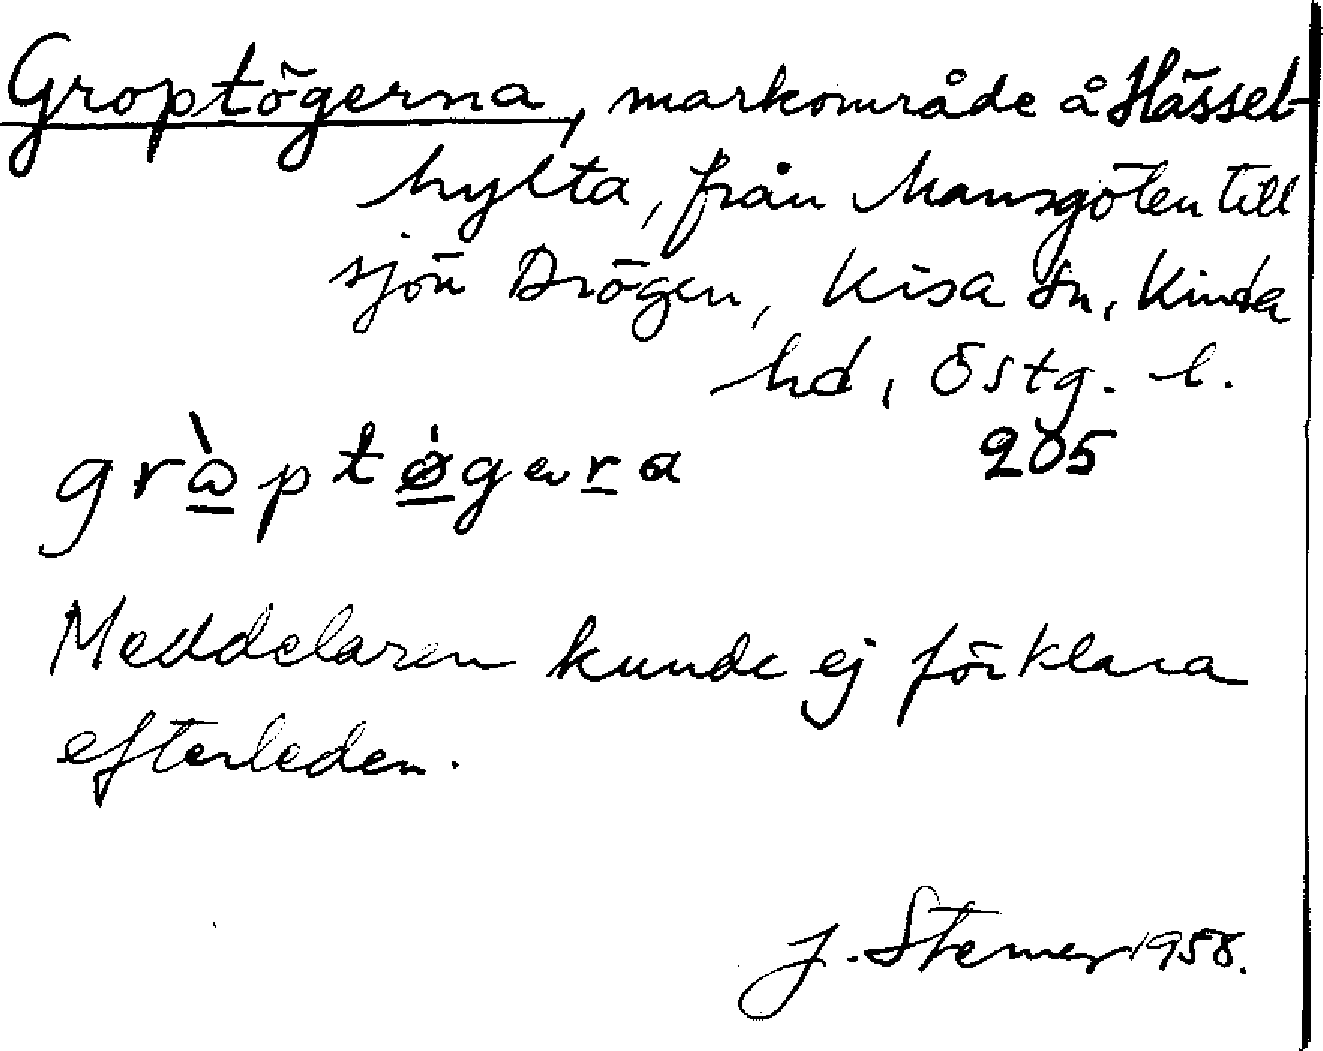 Groptögerna, markområde å Hässel-
hylta, från Mansgölen till
sjön Drögen, Kisa sn, Kinda
hd, Östg. l.
205
Meddelaren kunde ej förklara
efterleden.
J. 1958.